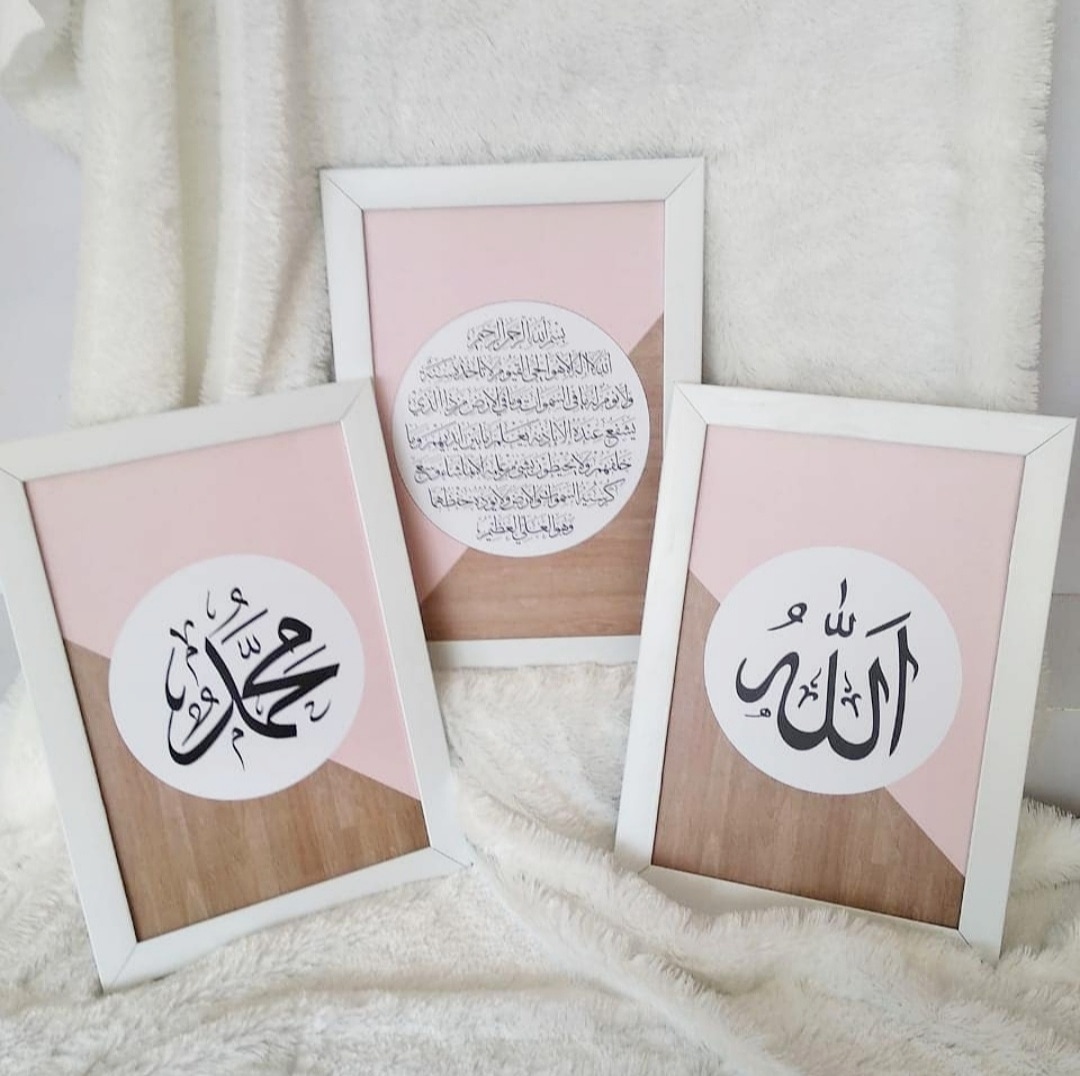 بسم الله الرحمن الرحيم
الله لا اله الا هو الحي القيوم لا تأخذه سنة
ولا نوم له ما في السموات وما في الارض من ذا الذي
يشفع عنده إلا بإذنه يعلم ما بين أيديهم وما
خلفهم ولا يحيطون بشيء من علمه إلا بما شاء وسع
كرسيه السموات والارض ولا يؤده حفظهما
وهو العلي العظيم
اللّٰهُ
مُحَمَّدٌ